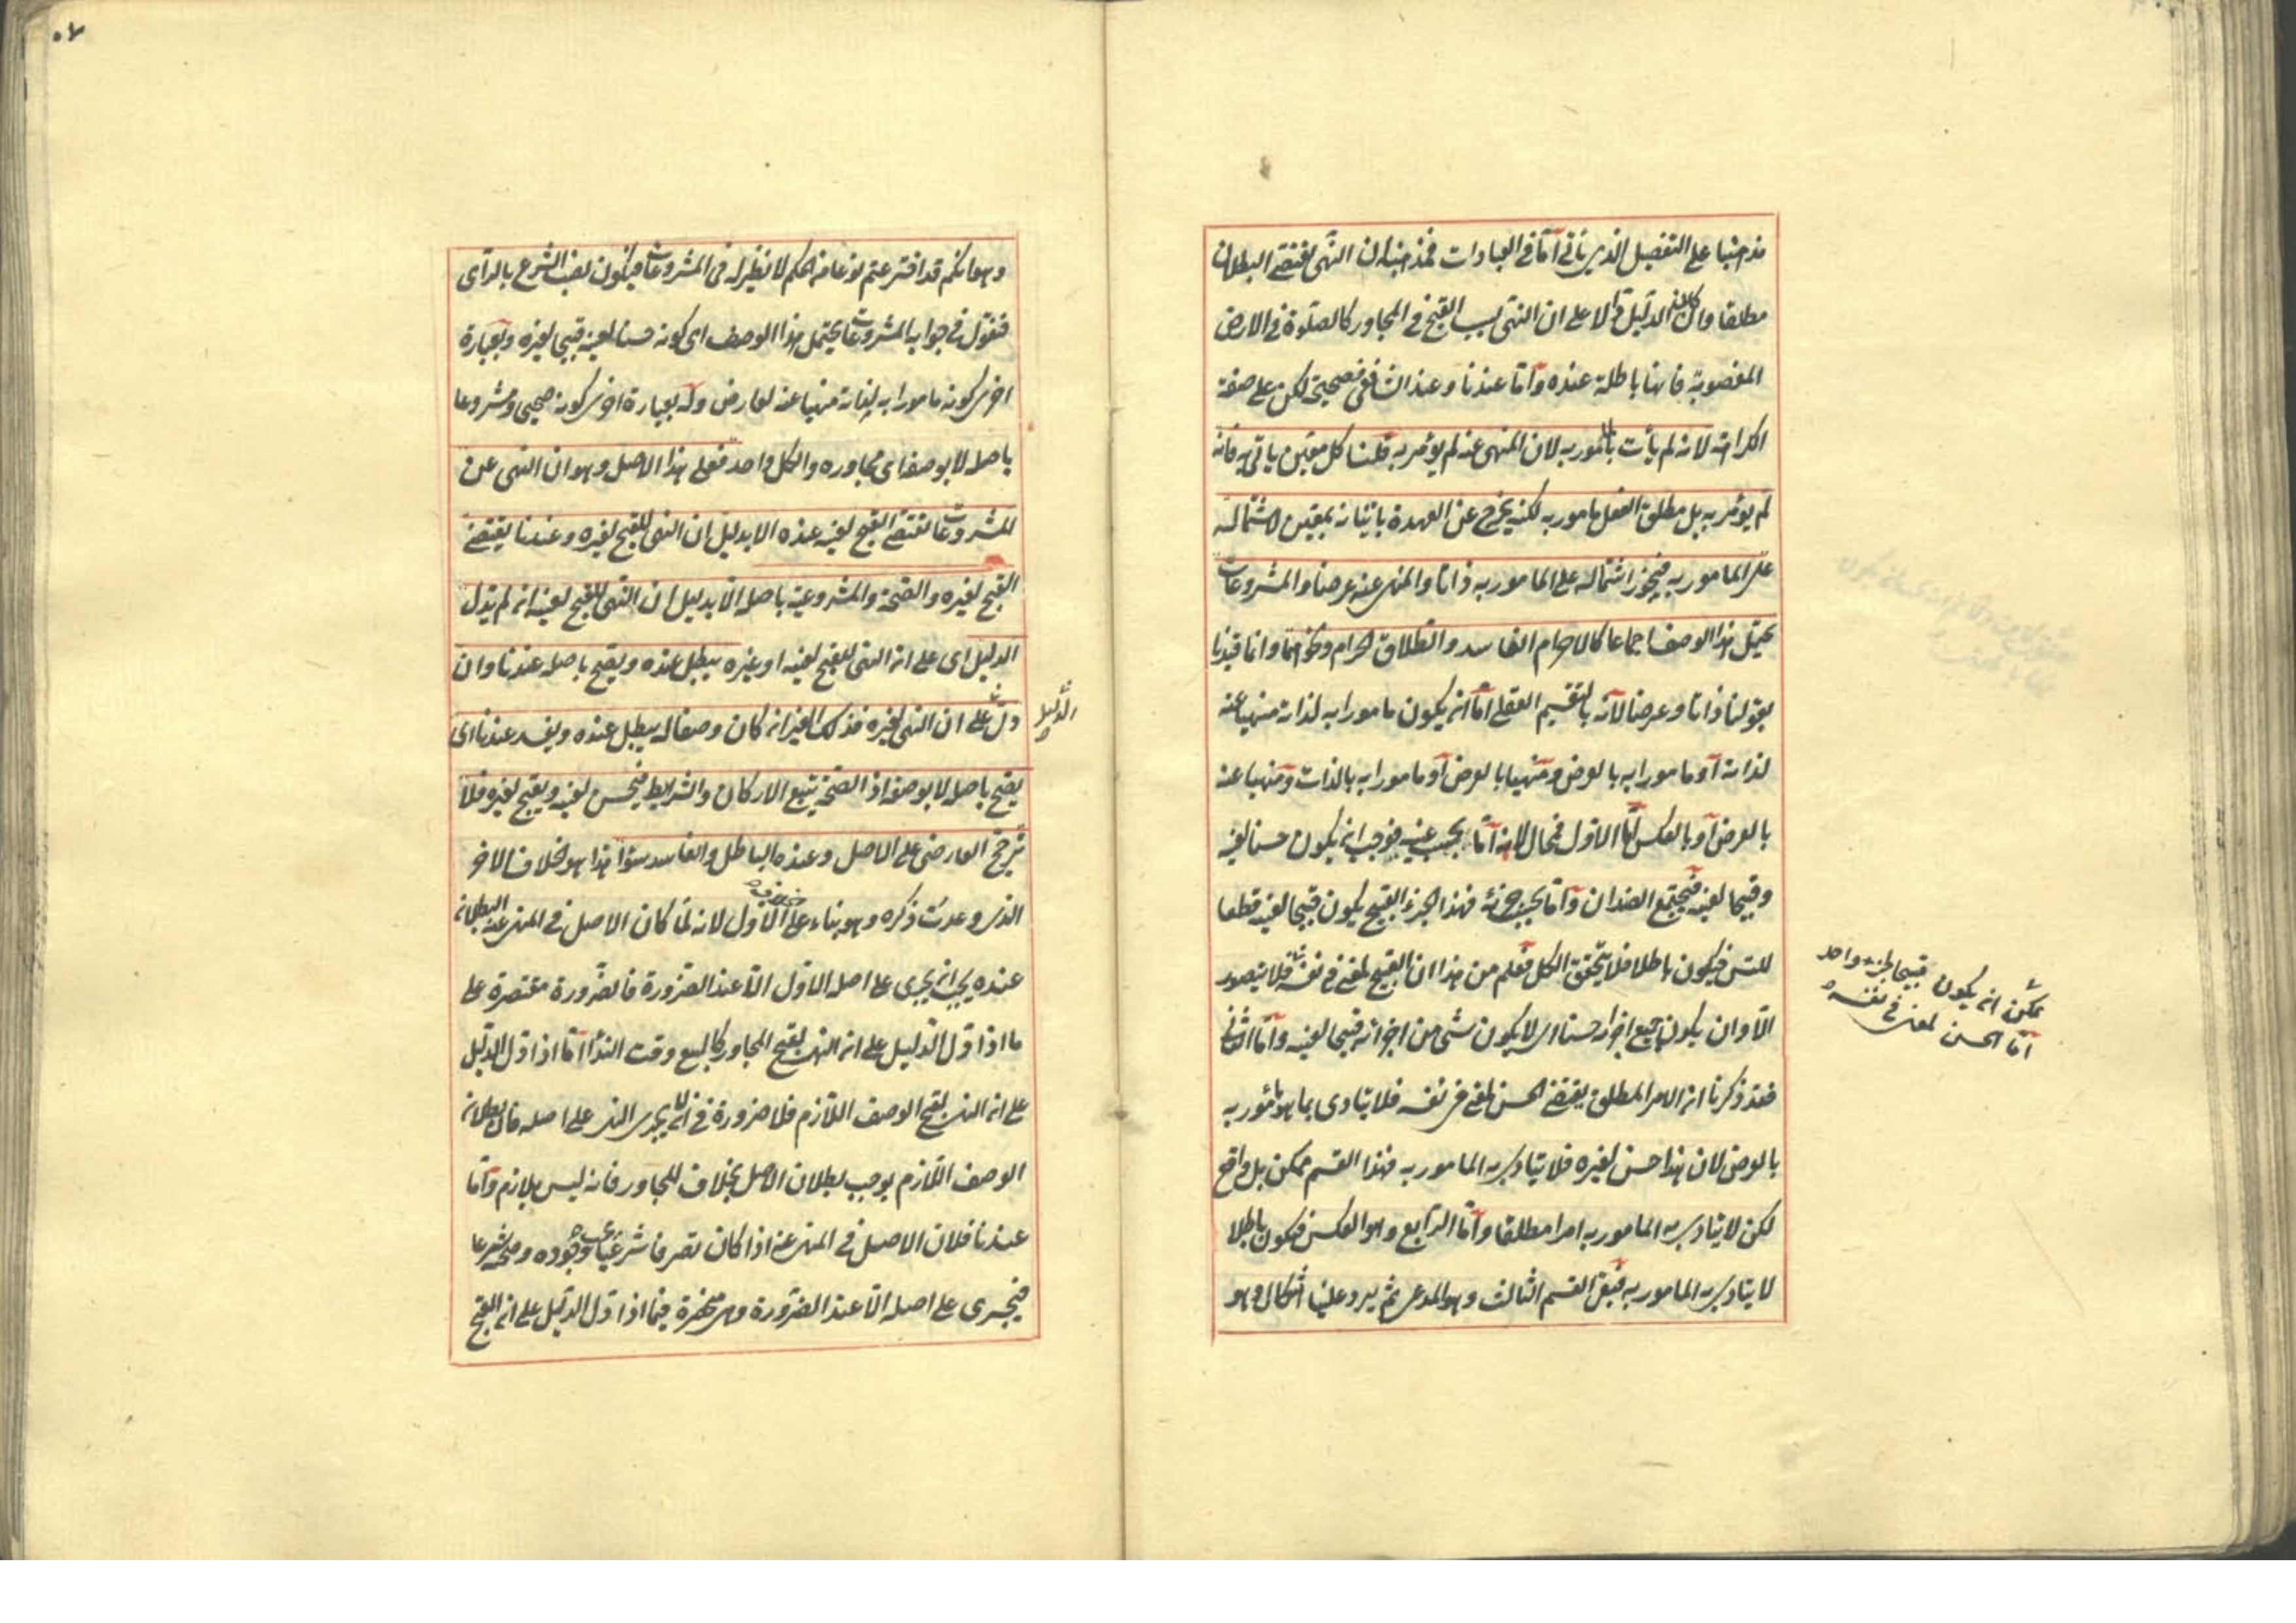 مذهبنا على التفصيل الذي يأتى أما فى العبادات فمذهبنا ان النهى يقتضى البطلان
مطلقا وان كان الدليل دالا على ان النهى بسبب القبح فى المجاور كالصلوة فى الارض
المغصوبة فانها باطلة عنده وأما عندنا وعند الشافعى فصحيحة لكن على صفة
الكراهة لانه لم يأت بالمأمور به لان المنهى عنه لم يؤمر به قلنا كل معين يأتى به فانه
لم يؤمر به بل مطلق الفعل مامور به لكنه يخرج عن العهدة باتيانه بمعين لاشتماله
على المامور به فيجوز اشتماله على المامور به ذاتا والمنهى عنه عرضا والمشروعات
يحتمل هذا الوصف اجماعا كالاحرام الفاسد والطلاق الحرام ونحوهما وانما قيدنا
بقولنا ذاتا وعرضا لانه بالتقسيم العقلى اما ان يكون مامورا به لذاته منهيا عنه
لذاته أو مامورا به بالعرض ومنهيا بالعرض أو مامورا به بالذات ومنهيا عنه
بالعرض أو بالعكس أما الاول فمحال لانه أما بحسب عينه فوجب ان يكون حسنا لعينه
وقبيحا لعينه فيجتمع الضدان وأما بحسب جزئه فهذا الجزء القبيح يكون قبيحا لعينه قطعا
للتس فيكون باطلا فلا يتحقق الكل فعلم من هذا ان القبيح لمعنى فى نفسه فلا يتصور
الا وان يكون جميع اجزائه حسنا اى لا يكون شئ من اجزائه قبيحا لعينه وأما الثانى
فقد ذكرنا ان الامر المطلق يقتضى الحسن لمعنى فى نفسه فلا يتادى بما هو مأمور به
بالعرض لان هذا حسن لغيره فلا يتادى به المامور به فهذا القسم ممكن بل واقع
لكن لا يتادى به المامور به امرا مطلقا وأما الرابع وهو العكس فيكون باطلا
لا يتادى به المامور به فبقى القسم الثالث وهو المدعى ثم يرد علينا اشكال وهو
يمكن ان يكون قبيحا لجزء واحد
أما الحسن لمعنى فى نفسه
وهو انكم قد اخترعتم نوعا من الحكم لا نظير له فى المشروعات فيكون نصب الشرع بالرأى
فنقول فى جوابه المشروعات يحتمل هذا الوصف اى كونه حسنا لعينه قبيحا لغيره وبعبارة
اخرى كونه مامورا به لذاته منهيا عنه لعارض وله بعبارة اخرى كونه صحيحا ومشروعا
باصله لا بوصفه اى مجاوره والكل واحد فعلى هذا الاصل وهو ان النهى عن
المشروعات يقتضى القبح لعينه عنده الا بدليل ان النهى للقبح لغيره وعندنا يقتضى
القبح لغيره والصحة والمشروعية باصله الا بدليل ان النهى للقبح لعينه ان لم يدل
الدليل اى على ان النهى للقبح لعينه او غيره يبطل عنده ويصح باصله عندنا وان
دل على ان النهى لغيره فذلك الغير ان كان وصفا له يبطل عنده ويفسد عندنا اى
الدليل
يصح باصله لا بوصفه اذ الصحة يتبع الاركان والشرايط فيحسن لعينه ويقبح لغيره فلا
ترجح العارضى على الاصل وعنده الباطل والفاسد سواء هذا هو الخلاف الاخر
الذى وعدت ذكره وهو بناء على الخلاف الاول لانه لما كان الاصل فى المنهى عنه البطلان
عنده يجب ان يجرى على اصله الاول الا عند الضرورة فالضرورة مقتصرة على
ما اذا دل الدليل على ان النهى لقبح المجاور كالبيع وقت النداء أما اذا دل الدليل
على ان النهى لقبح الوصف اللازم فلا ضرورة فى ان لا يجرى النهى على اصله فان بطلان
الوصف اللازم يوجب بطلان الاصل بخلاف المجاور فانه ليس بلازم وأما
عندنا فلان الاصل فى المنهى عنه اذا كان تصرفا شرعيا وجوده وصحته شرعا
فيجرى على اصله الا عند الضرورة وهى منحصرة فيما اذا دل الدليل على ان القبح